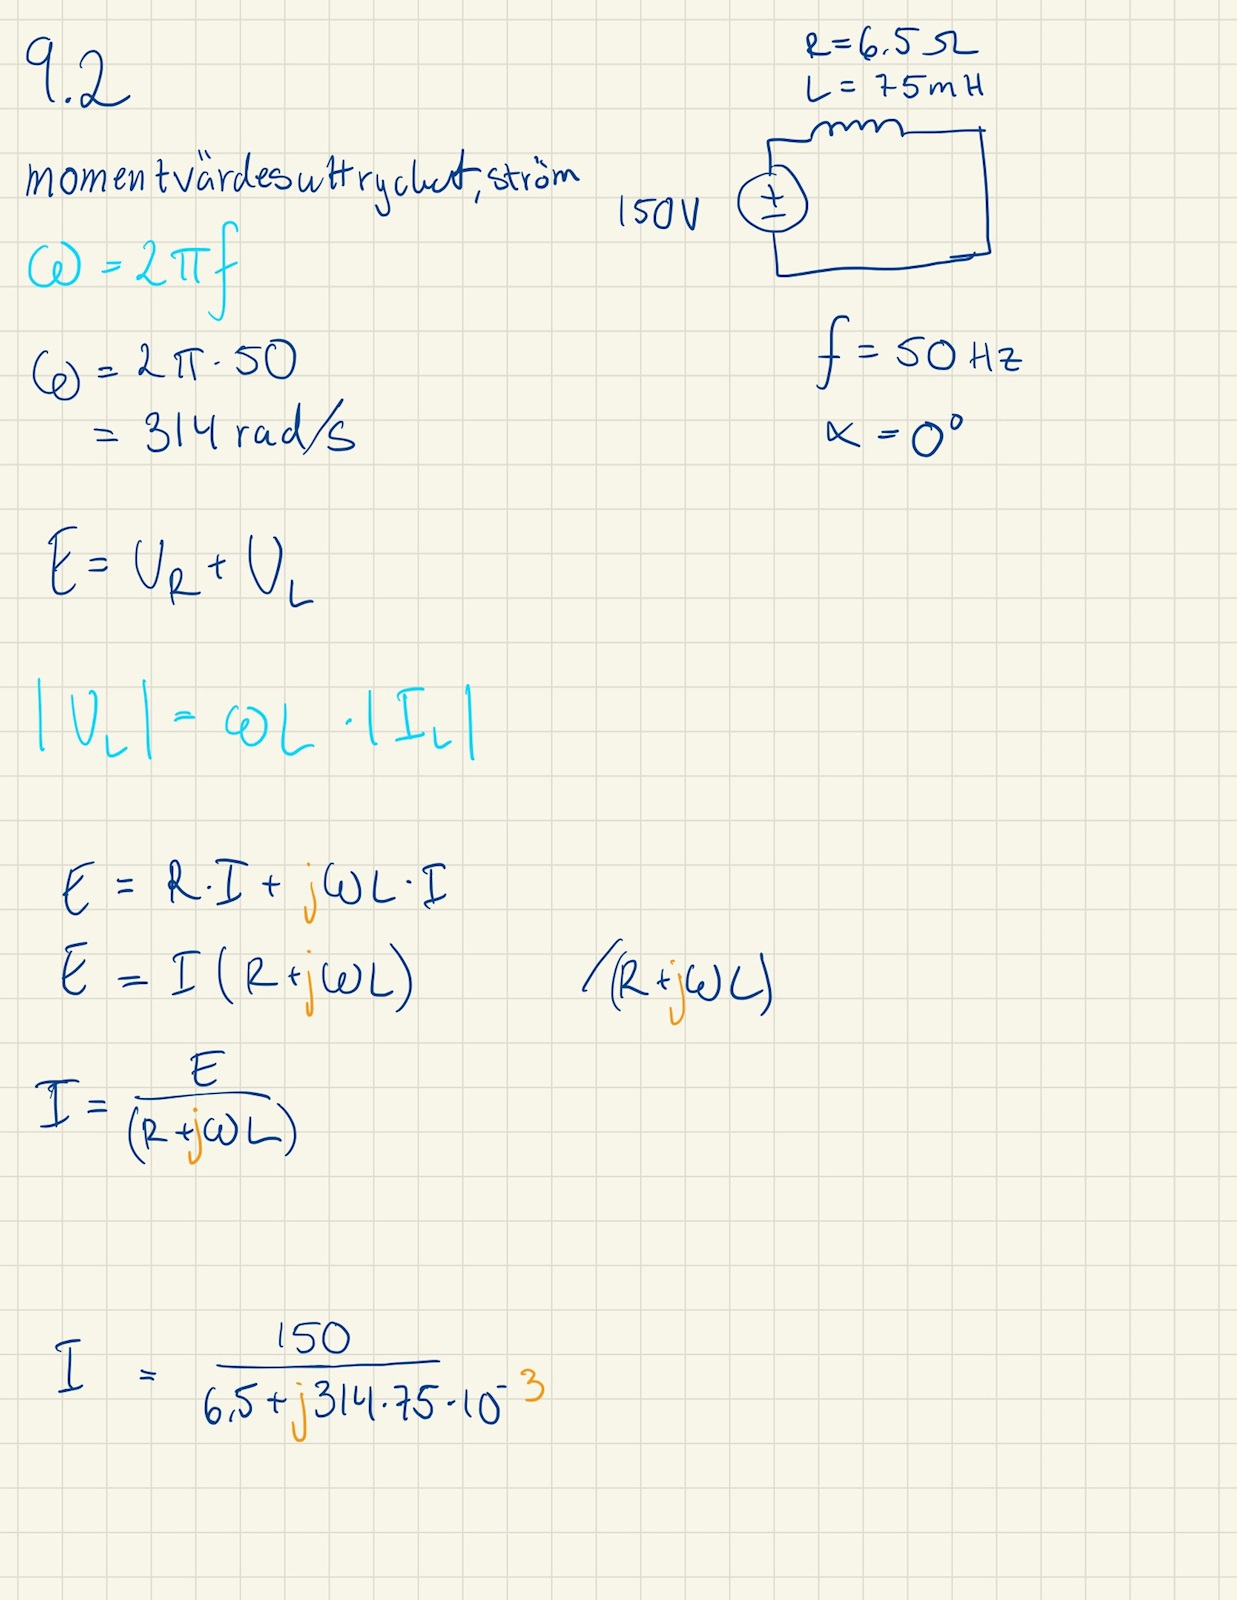 9.2
R=6.5 Ω
L = 75mH
momentvärdesuttrycket, ström
150V
+
−
ω = 2πf
ω = 2π · 50
= 314 rad/s
f = 50 Hz
α = 0°
E = U_R + U_L
|U_L| = ωL · |I_L|
E = R·I + jωL·I
E = I (R+jωL) /(R+jωL)
I = E/(R+jωL)
I = 150/(6,5+j314·75·10⁻³)